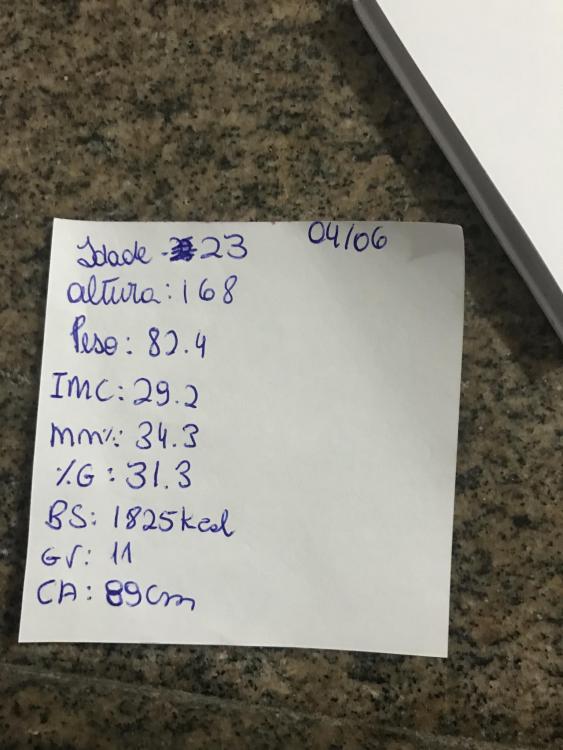 Idade - 23 04/06
altura: 168
Peso: 82.4
IMC: 29.2
mm%: 34.3
%G: 31.3
BS: 1825 kcal
GV: 11
CA: 89cm